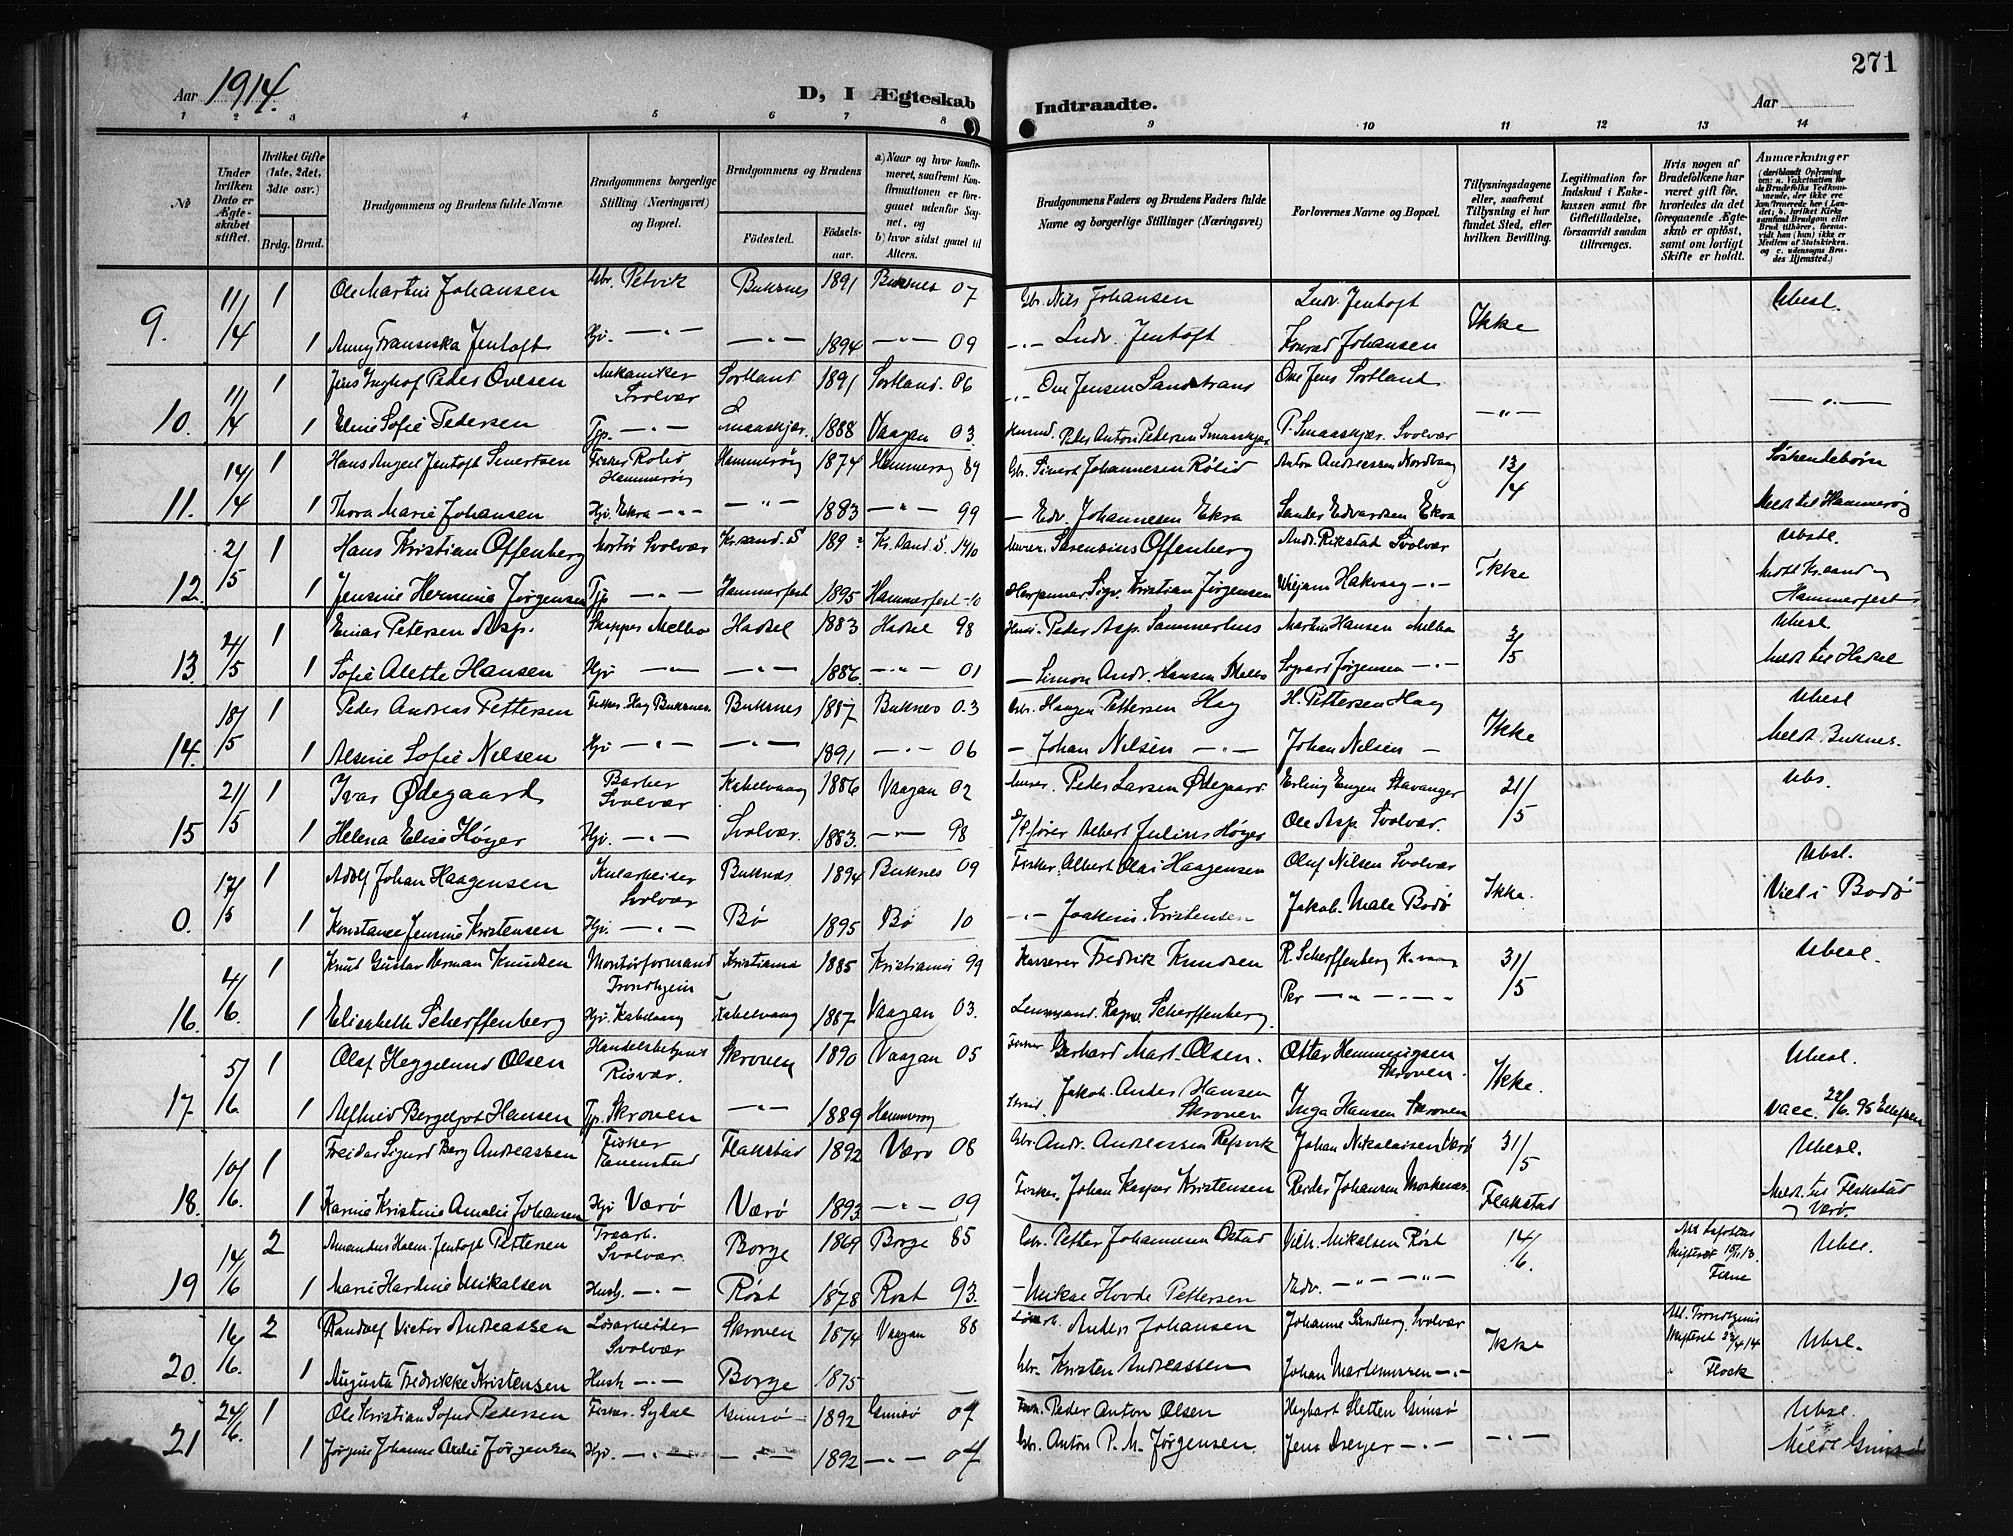 271
Aar 1914.
D, I Ægteskab Indtraadte.
Aar
1 2 3 4 5 6 7 8 9 10 11 12 13 14
No
Under hvilken Dato er Ægteskabet stiftet.
Hvilket Gifte (1ste, 2det, 3die osv.)
Brdg. Brud.
Brudgommens og Brudens fulde Navne.
Brudgommens borgerlige Stilling (Næringsvei) og Bopæl.
Brudgommens og Brudens
Fødested. Fødselsaar.
a) Naar og hvor konfirmeret, saafremt Konfirmationen er foregaaet udenfor Sognet, og
b) hvor sidst gaaet til Alters.
Brudgommens Faders og Brudens Faders fulde Navne og borgerlige Stillinger (Næringsvei)
Forlovernes Navne og Bopæl.
Tillysningsdagene eller, saafremt Tillysning ei har fundet Sted, efter hvilken Bevilling.
Legitimation for Indskud i Enkekassen samt for Giftetilladelse, forsaavidt saadan tiltrænges.
Hvis nogen af Brudefolkene har været gift før, hvorledes da det foregaaende Ægteskab er opløst, samt om lovligt Skifte er holdt.
Anmærkninger
9. 11/4 1 Ole Martin Johansen Gbr. Petvik Buknes 1891 Buknes 07 Gbr. Nils Johansen Ludv. Jentoft Ikke Ubesl.
1 Anny Fransiska Jentoft Hjv. —"— —"— 1894 —"— 09 —"— Ludv. Jentoft Konrad Johansen
10. 11/4 1 Peder Ovesen Mekaniker Svolvær Sortland 1891 Sortland 06 —"— Ove Jensen Sandstrand Ove Jens Sortland —"— —"—
1 Eline Sofie Pedersen Tjp. —"— Smaaskjær. 1888 Vaagan 03. Peder Anton Pedersen Smaaskjær P. Smaaskjær. Svolvær
11. 14/4 1 Hans Angel Jentoft Sivertsen Fisker Hammerøy Hammerøy 1874 Hammerøy 89 Gbr. Sivert Johannesen Anton Andreassen Nordvaag 13/4 Søskendebørn
1 Thora Marie Johansen Hjv. Ekra —"— —"— 1883 —"— 99 — Edv. Johannesen Ekra Sander Edvardsen Ekra Meldt til Hammerøy
12. 2/5 1 Hans Kristian Offenberg Montør Svolvær Kr.sand. S 189 Kr.sand. S. 1910 Murer. Sørensius Offenberg Andr. Rikstad Svolvær Ikke Ubesl.
1 Jensine Hermine Jørgensen Tjp —"— Hammerfest 1895 Hammerfest -10 Sigv. Kristian Jørgensen Wiljam Hakvaag —"— Meldt Kr.sand og Hammerfest
13. 4/5 1 Einar Petersen Asp. Skipper Melbo Hadsel 1883 Hadsel 98 Peder Asp. Sommerhus Martin Hansen Melbo 3/5 Ubesl
1 Sofie Alette Hansen Hjv —"— —"— 1886. —"— 01 — Simon Andr. Hansen Melbo Sigvard Jørgensen —"— Meldt til Hadsel
14. 18/5 1 Peder Andreas Pettersen Fisker. Hag Buknes. Buknes 1887 Buknes 03 Gbr. Haagen Pettersen Hag H. Pettersen Hag Ikke Ubesl
1 Alsine Sofie Nilsen Hjv —"— —"— 1891 —"— 06 — Johan Nilsen —"— Johan Nilsen — Meldt Buknes.
15 21/5 1 Ivar Ødegaard Barber Svolvær Kabelvaag 1886 Vaagan 02 Murer. Peder Larsen Ødegaard. Erling Engen Stavanger 21/5 Ubs.
1 Helena Elise Høyer Hjv. —"— Svolvær. 1883. —"— 98 Albert Julius Høyer Ole Asp. Svolvær.
0. 17/5 1 Adolf Johan Haagensen Kularbeider Svolvær Buknes 1894 Buknes 09 Fisker. Albert Olai Haagensen Oluf Nilsen Svolvær Ikke. Ubsl.
1 Konstanse Jensine Kristensen Hjv. —"— Bø 1895 Bø 10 —"— Joakim Kristensen Jakob Male Bodø Viet i Bodø
16. 4/6. 1 Knut Gustav Herman Knudsen Montørformand Trondhjem Kristiania 1885 Kristiania 99 Kasserer Fredrik Knudsen R. Scherffenberg K.vaag 31/5 Ubesl.
1 Elisabeth Scherffenberg Hjv. Kabelvaag Kabelvaag 1887 Vaagan 03. Lensmand. Ragnv. Scherffenberg Per —"— —"—
17 5/6 1 Olaf Heggelund Olsen Handelsbetjent Risvær. Skroven 1890 Vaagan 05 Fisker Gerhard Mart. Olsen. Ottar Hemmingsen Skroven. Ikke. Ubesl.
1 Alfhild Bergljot Hansen Tjp. Skroven —"— 1889 Hammerøy Jakob Ander Hansen Skroven Inga Hansen Skroven Vacc. 22/6. 95 Ellefsen
18. 10/6. 1 Freidar Sigurd Berg Andreassen Fisker Flakstad 1892 Værø 08 Gbr. Andr. Andreassen Refsvik Johan Nikolaisen Værø 31/5 Flakstad Ubesl.
1 Karine Kristine Amalie Johansen Hjv Værø Værø 1893 —"— 09 Fisker. Johan Kasper Kristensen Reidar Johansen Moskenes. Meldt til Flakstad og Værø.
19 14/6 2 Amandus Halm. Jentoft Pettersen Svolvær. Borge 1869 Borge 85 Gbr. Petter Johannesen Ostad Vilh. Mikalsen Røst 14/6. Ubsl.
1 Marie Hardine Mikalsen Hush. —"— Røst 1878 Røst 93. — Mikal Hovde Pettersen Edv. —"— —"—
20. 16/6. 2 Randolf Victor Andreassen Løsarbeider Svolvær Skroven 1874 Vaagan 88 Anders Johansen Johanne Sandberg. Svolvær Ikke Ubsl.
1 Augusta Fredrikke Kristensen Hush —"— Borge 1875 Gbr. Kristen Andreassen Johan Martinussen —"—
21 24/6. 1 Ole Kristian Sofus Pedersen Fisker. Sydal Gimsø 1892 Gimsø 07 Peder Anton Olsen Hegbart Sletten Gimsø —"— Ubsl.
1 Jørgine Johanne Jørgensen Hjv. —"— —"— 1892 —"— 07 Gbr. Anton P. M. Jørgensen. Jens Dreyer —"— Meldt Gimsø